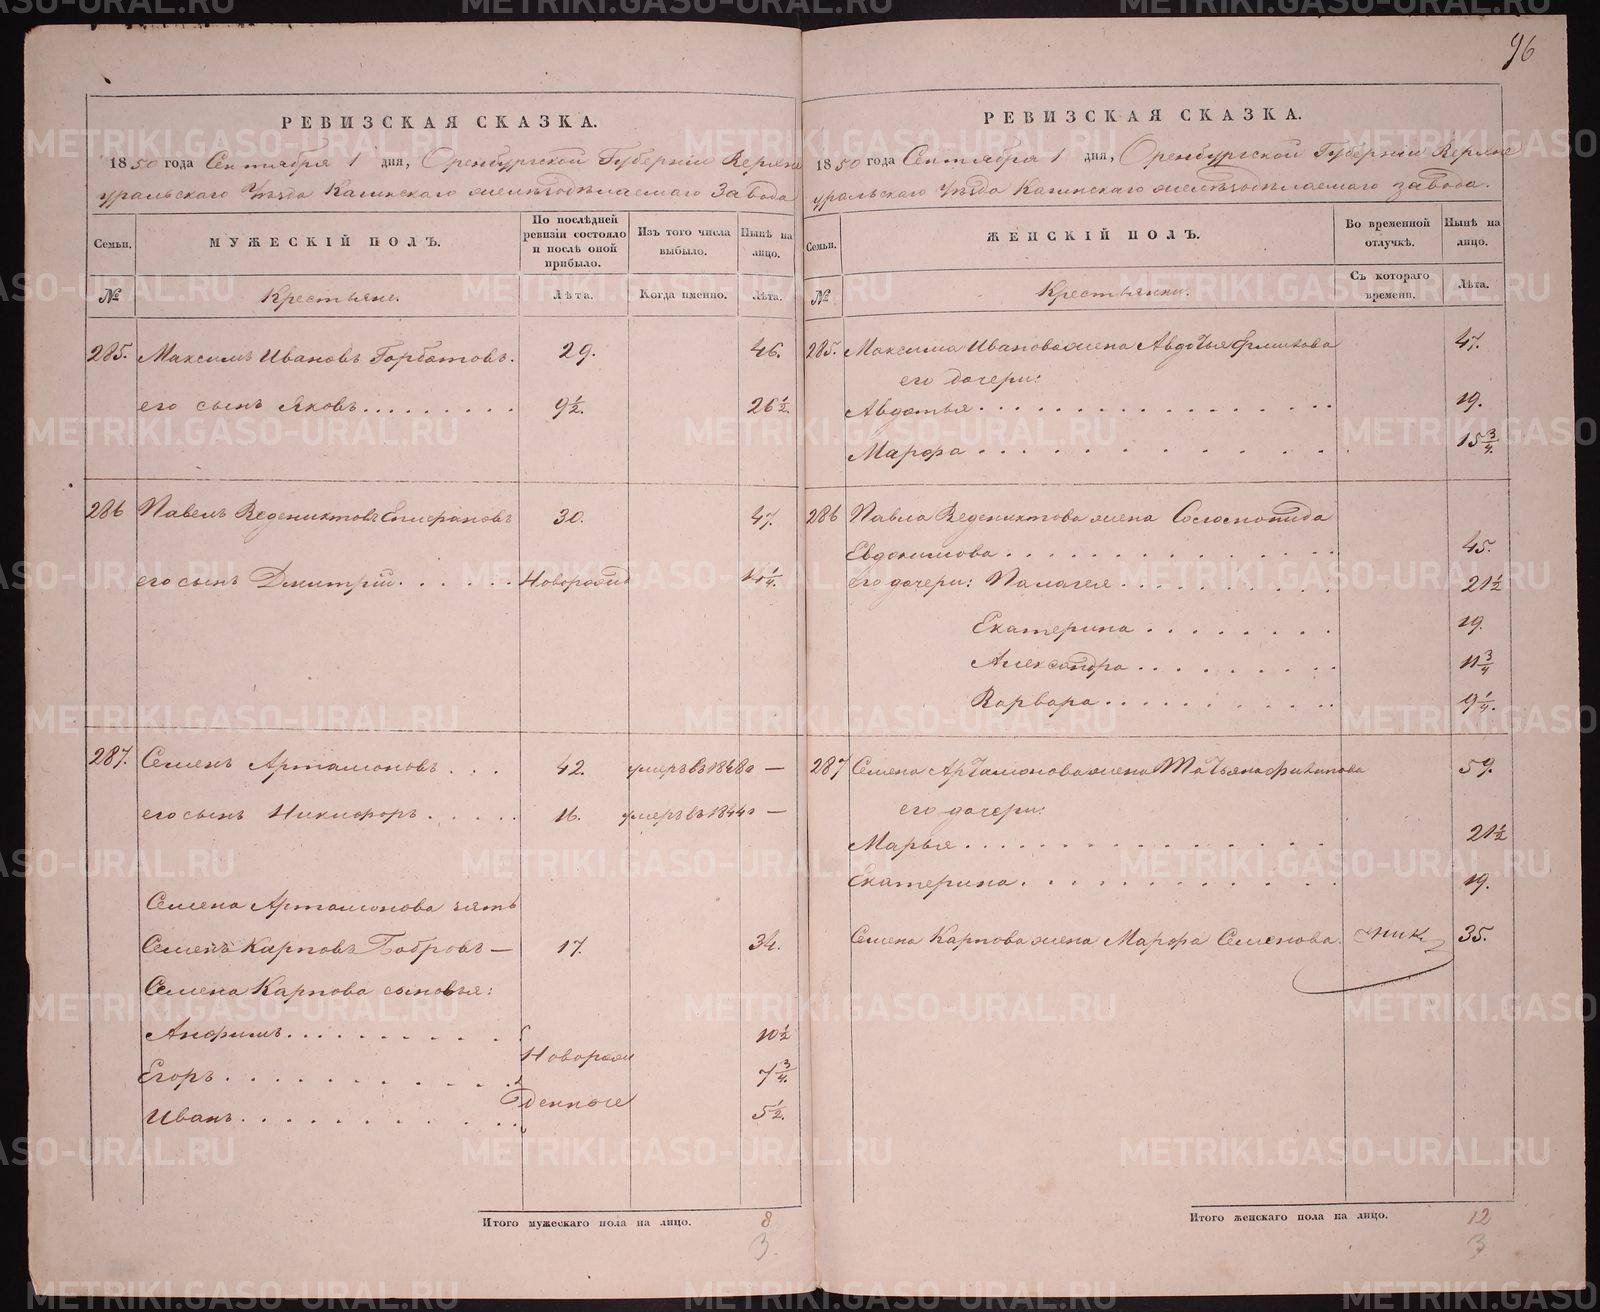 96
РЕВИЗСКАЯ СКАЗКА.
1850 года Сентября 1 дня, Оренбургской Губернии Верхне
уральскаго Уѣзда Кагинскаго желѣзодѣлаемаго Завода
Семьи.
МУЖЕСКІЙ ПОЛЪ.
По послѣдней ревизіи состояло и послѣ оной прибыло.
Изъ того числа выбыло.
Нынѣ на лицо.
№
Крестьяне.
Лѣта.
Когда именно.
Лѣта.
285. Максимъ Ивановъ Горбатовъ. 29. 46.
его сынъ Яковъ 9½ 26½.
286 Павелъ Ведениктовъ Епифановъ 30. 47.
его сынъ Дмитрій Новорожд 14¼.
287. Семенъ Артамоновъ 42. умеръ въ 1848 —
его сынъ Никифоръ 16. умеръ въ 1844 —
Семена Артамонова зять
Семенъ Карповъ Бобровъ — 17. 34.
Семена Карпова сыновья:
Анфимъ 10½
Новорож
Егоръ 7¾.
денные
Иванъ 5½.
Итого мужескаго пола на лицо. 8
3
РЕВИЗСКАЯ СКАЗКА.
1850 года Сентября 1 дня, Оренбургской Губерніи Верхне
уральскаго Уѣзда Кагинскаго желѣзодѣлаемаго завода.
Семьи.
ЖЕНСКІЙ ПОЛЪ.
Во временной отлучкѣ.
Нынѣ на лицо.
№
Крестьянки.
Съ котораго времени.
Лѣта.
285. Максима Иванова жена Авдотья 47.
его дочери:
Авдотья 19.
Марфа 15¾.
286 Павла Ведениктова жена
Евдокимова 45.
его дочери: Палагея 21½
Екатерина 19.
Александра 11¾
Варвара 9¼.
287 Семена Артамонова жена Татьяна Филипова 59.
его дочери:
Марья 21½
Екатерина 19.
Семена Карпова жена Марфа Семенова. 35.
Итого женскаго пола на лицо. 12
3
METRIKI.GASO-URAL.RU